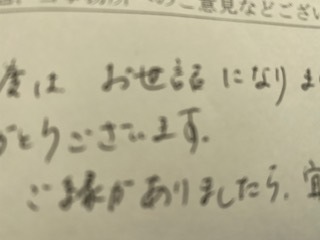 へのご意見などござい
度は お世話になりま
がとうございます。
ご縁がありましたら、宜